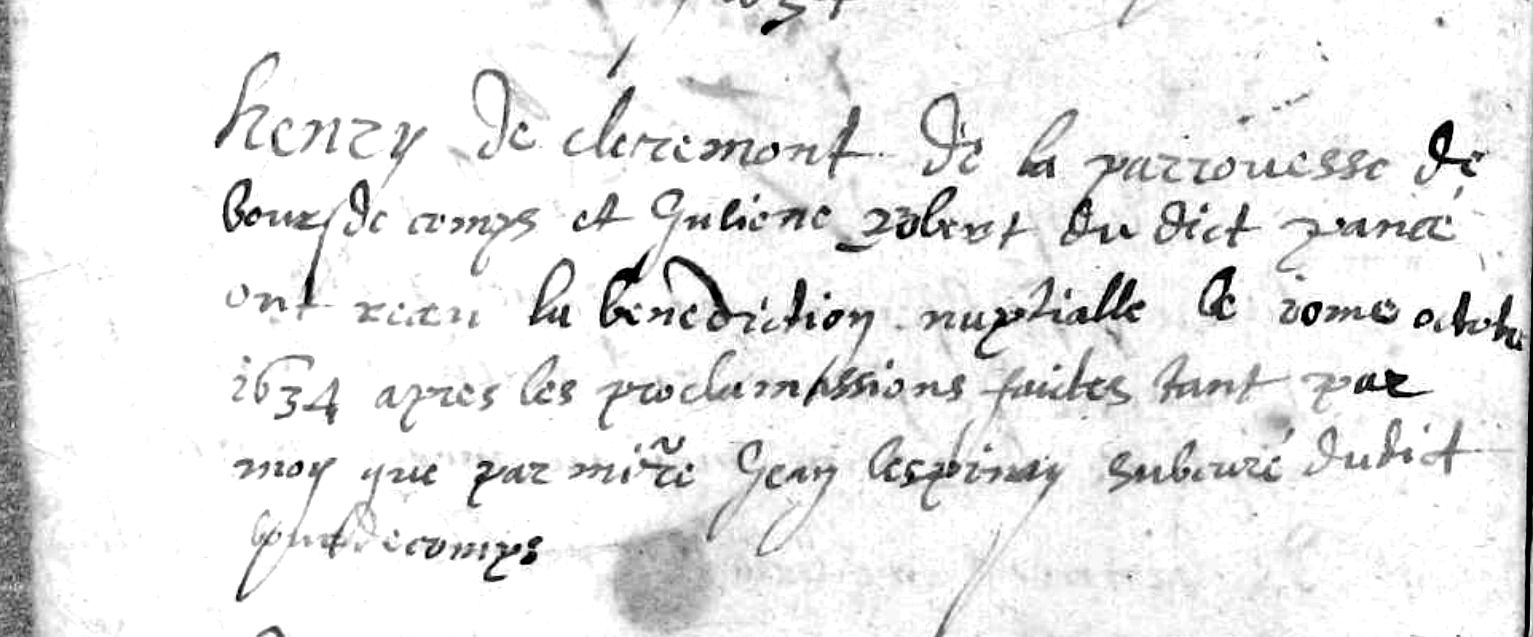 1634
henry de cleremont de la parrouesse de
bourgdecomps et Guliene robert du dict pancé
ont receu la benediction nuptialle le iome octobre
1634 apres les proclamassions faictes tant par
moy que par mire Gean lespinay subcuré dudict
bourdecomps